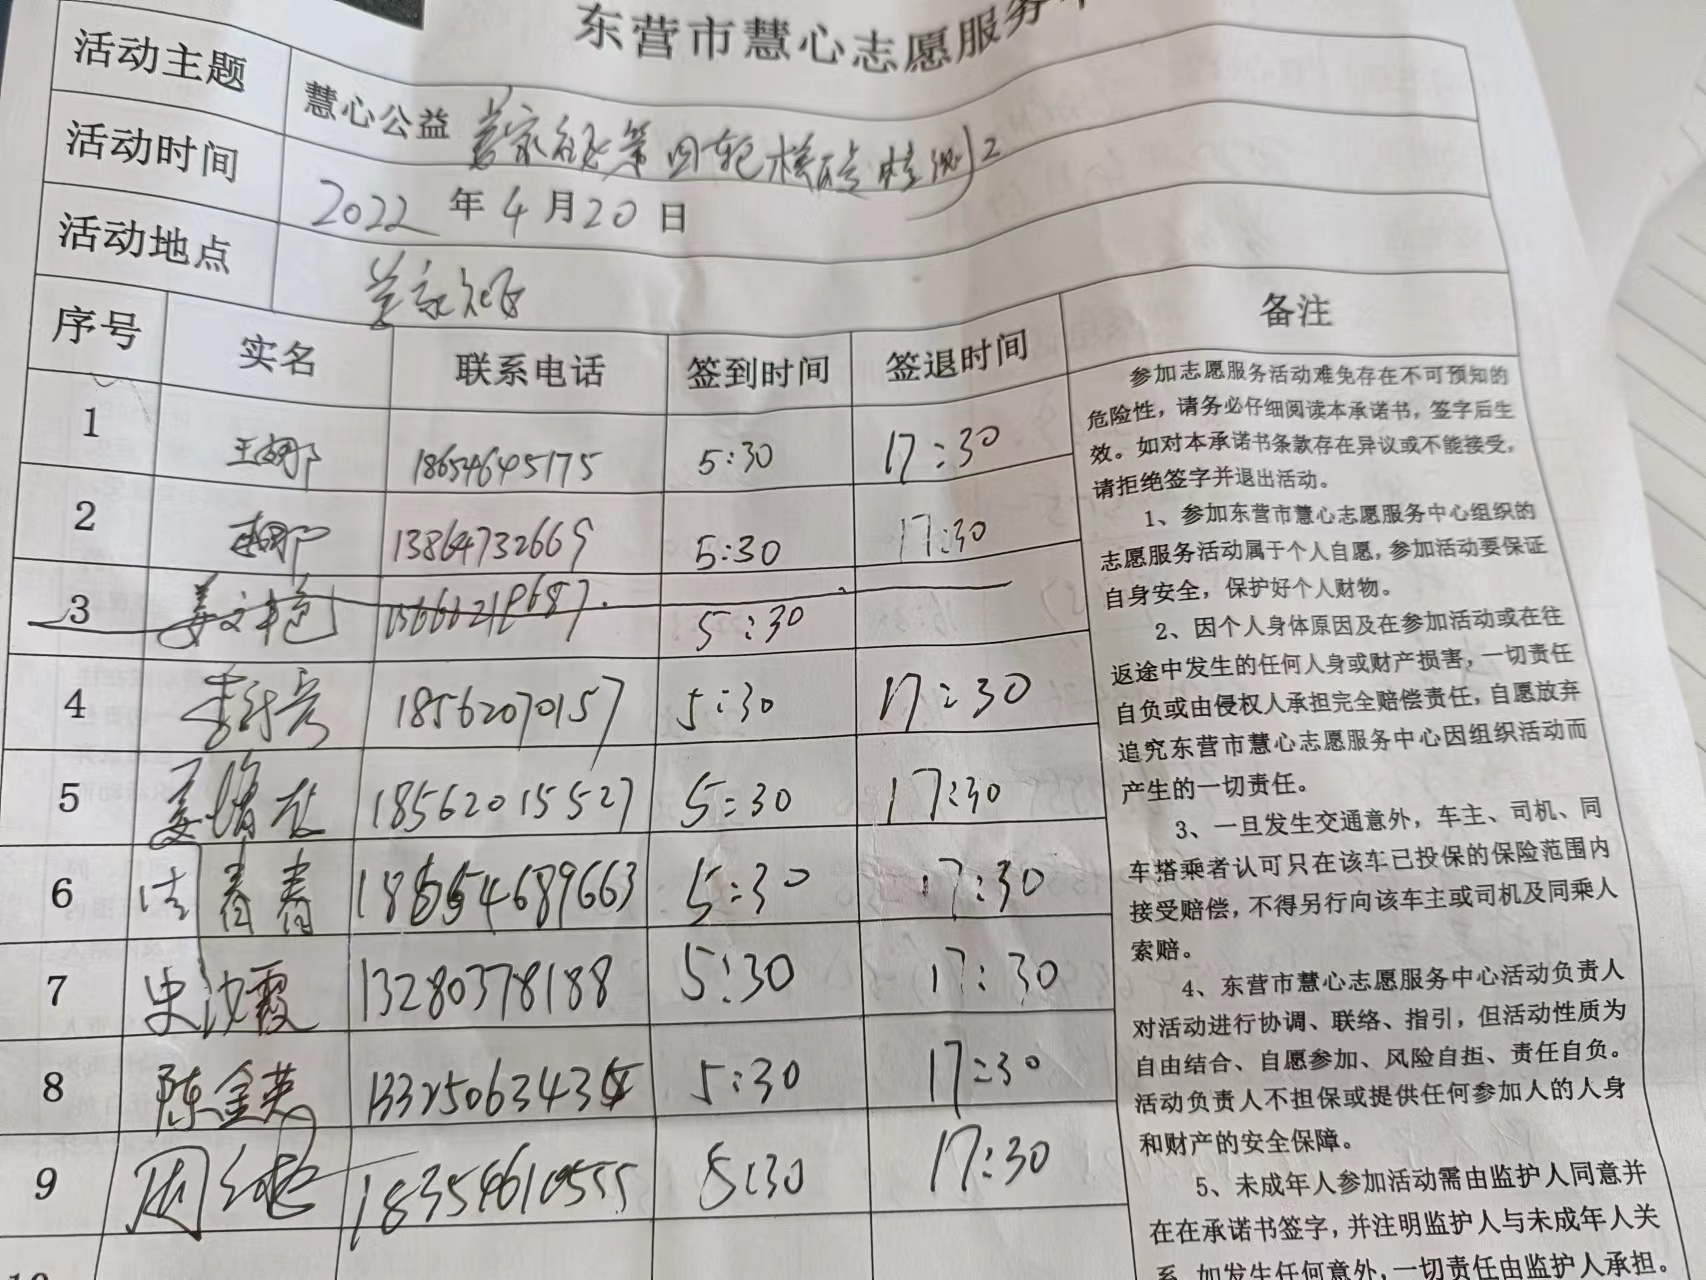 东营市慧心志愿服务
活动主题 慧心公益 第四轮核酸检测2
活动时间 2022年4月20日
活动地点
序号 实名 联系电话 签到时间 签退时间 备注
1 王娜 18654645175 5:30 17:30
2 13864732669 5:30 17:30
3 姜文艳 5:30
4 18562070157 5:30 17:30
5 18562015527 5:30 17:30
6 春春 18654689663 5:30 17:30
7 史沙霞 13280378188 5:30 17:30
8 陈金英 5:30 17:30
9 周 18354610555 5:30 17:30
10
参加志愿服务活动难免存在不可预知的
危险性，请务必仔细阅读本承诺书，签字后生
效。如对本承诺书条款存在异议或不能接受，
请拒绝签字并退出活动。
1、参加东营市慧心志愿服务中心组织的
志愿服务活动属于个人自愿，参加活动要保证
自身安全，保护好个人财物。
2、因个人身体原因及在参加活动或在往
返途中发生的任何人身或财产损害，一切责任
自负或由侵权人承担完全赔偿责任，自愿放弃
追究东营市慧心志愿服务中心因组织活动而
产生的一切责任。
3、一旦发生交通意外，车主、司机、同
车搭乘者认可只在该车已投保的保险范围内
接受赔偿，不得另行向该车主或司机及同乘人
索赔。
4、东营市慧心志愿服务中心活动负责人
对活动进行协调、联络、指引，但活动性质为
自由结合、自愿参加、风险自担、责任自负。
活动负责人不担保或提供任何参加人的人身
和财产的安全保障。
5、未成年人参加活动需由监护人同意并
在在承诺书签字，并注明监护人与未成年人关
系，如发生任何意外，一切责任由监护人承担。